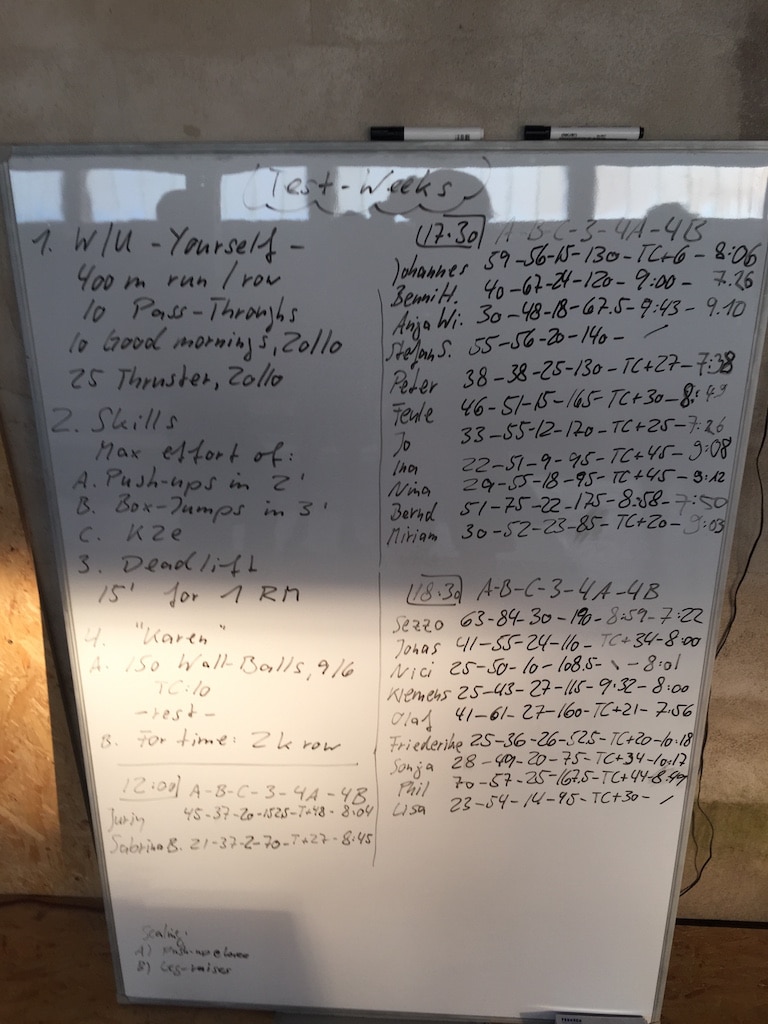 Test-Weeks
1. W/U - Yourself -
400 m run / row
10 Pass-Throghs
10 Good mornings, 20/10
25 Thruster, 20/10
2. Skills
Max effort of:
A. Push-ups in 2'
B. Box-Jumps in 3'
C. K2e
3. Deadlift
15' for 1 RM
4. "Karen"
A. 150 Wall-Balls, 9/6
TC:10
- rest -
B. For time: 2k row
12:00 A-B-C-3-4A-4B
45-37-20-152.5-T+48-8:04
Sabrina B. 21-37-2-70-T+27-8:45
Scaling:
A)
B) Leg-raiser
17.30 A-B-C-3-4A-4B
Johannes 59-56-15-130-TC+6-8:06
Benni H. 40-67-24-120-9:00-7.26
Anja Wi. 30-48-18-67.5-9:43-9.10
Stefan S. 55-56-20-140- /
Peter 38-38-25-130-TC+27-7:38
46-51-15-165-TC+30-8:49
Jo 33-55-12-170-TC+25-7:26
Ina 22-51-9-95-TC+45-9:08
Nina 29-55-18-95-TC+45-9:12
Bernd 51-75-22-175-8:58-7:50
Miriam 30-52-23-85-TC+20-9:03
18.30 A-B-C-3-4A-4B
Sezzo 63-84-30-190-8:59-7:22
Jonas 41-55-24-110-TC+34-8:00
Nici 25-50-10-108,5- \ -8:01
Klemens 25-43-27-115-9:32-8:00
Olaf 41-61-27-160-TC+21-7:56
Friederike 25-36-26-52.5-TC+20-10:18
Sonja 28-49-20-75-TC+34-10:17
Phil 70-57-25-167.5-TC+44-8:49
Lisa 23-54-14-95-TC+30- /